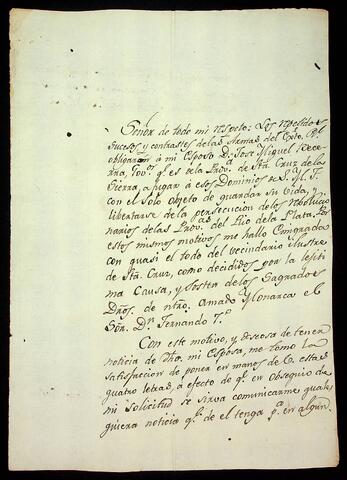 Señor de todo mi respeto: Los repetidos
sucesos y contrastes de las Armas del Exto. Rl.
obligaron á mi Esposo Dn. José Miguel Becer-
ra, Govor. q.e es de la Prova. de Sta. Cruz de la
Sierra, a fugar á esos Dominios de S. M. F.
con el solo objeto de guardar su vida, y
libertarse de la persecucion de los Rebolucio
narios de las Provas. del Rio de la Plata. Por
estos mismos motivos me hallo Emigrada
con quasi el todo del vecindario ilustre
de Sta. Cruz, como decididos por la lejiti
ma Causa, y sosten de los Sagrados
Dros. de ntro. Amado Monarca el
Sor. Dn. Fernando 7.o
Con este motivo, y deseosa de tener
noticia de Dho. mi Esposo, me tomo la
satisfaccion de poner en manos de V. estas
quatro letras, á efecto de q.e en obsequio de
mi solicitud se sirva comunicarme qual
quiera noticia q.e de el tenga pa. en algun